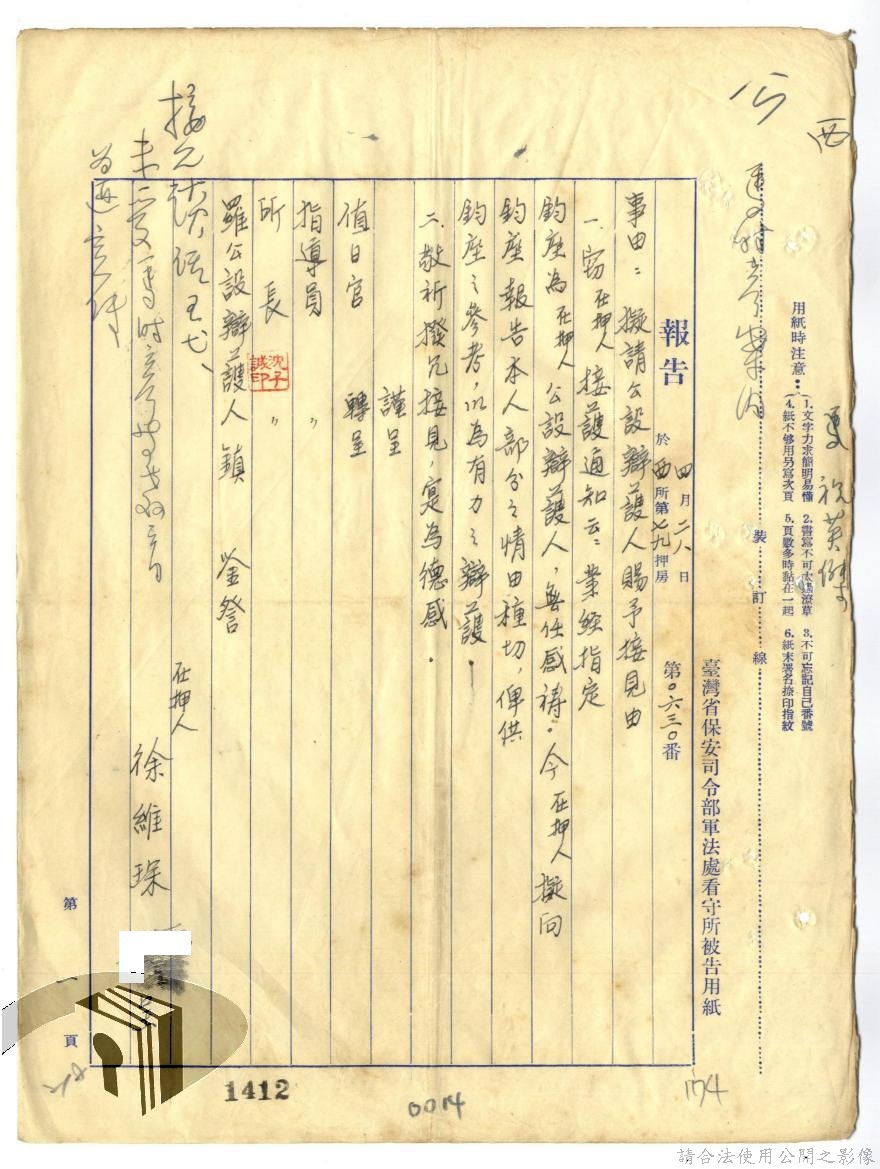 西
用紙時注意：
1. 文字力求簡明易懂　2. 書寫不可太過潦草　3. 不可忘記自己番號
4. 紙不够用另寫次頁　5. 頁數多時黏在一起　6. 紙末署名捺印指紋
裝訂線
臺灣省保安司令部軍法處看守所被告用紙
報告　於 西所第七九押房 四月二八日 第〇六三〇番
事由：擬請公設辯護人賜予接見由
一、竊在押人接護通知云：業經指定
鈞座為在押人公設辯護人，無任感禱。今在押人擬向
鈞座報告本人部分之情由種切，俾供
鈞座之參考，以為有力之辯護！
二、敬祈撥冗接見，寔為德感．
謹呈
值日官　轉呈
指導員　〃
所長　〃
沈子誠印
羅公設辯護人鎮　鈞詧
在押人
徐維琛
第一頁
1412
0014
174
請合法使用公開之影像